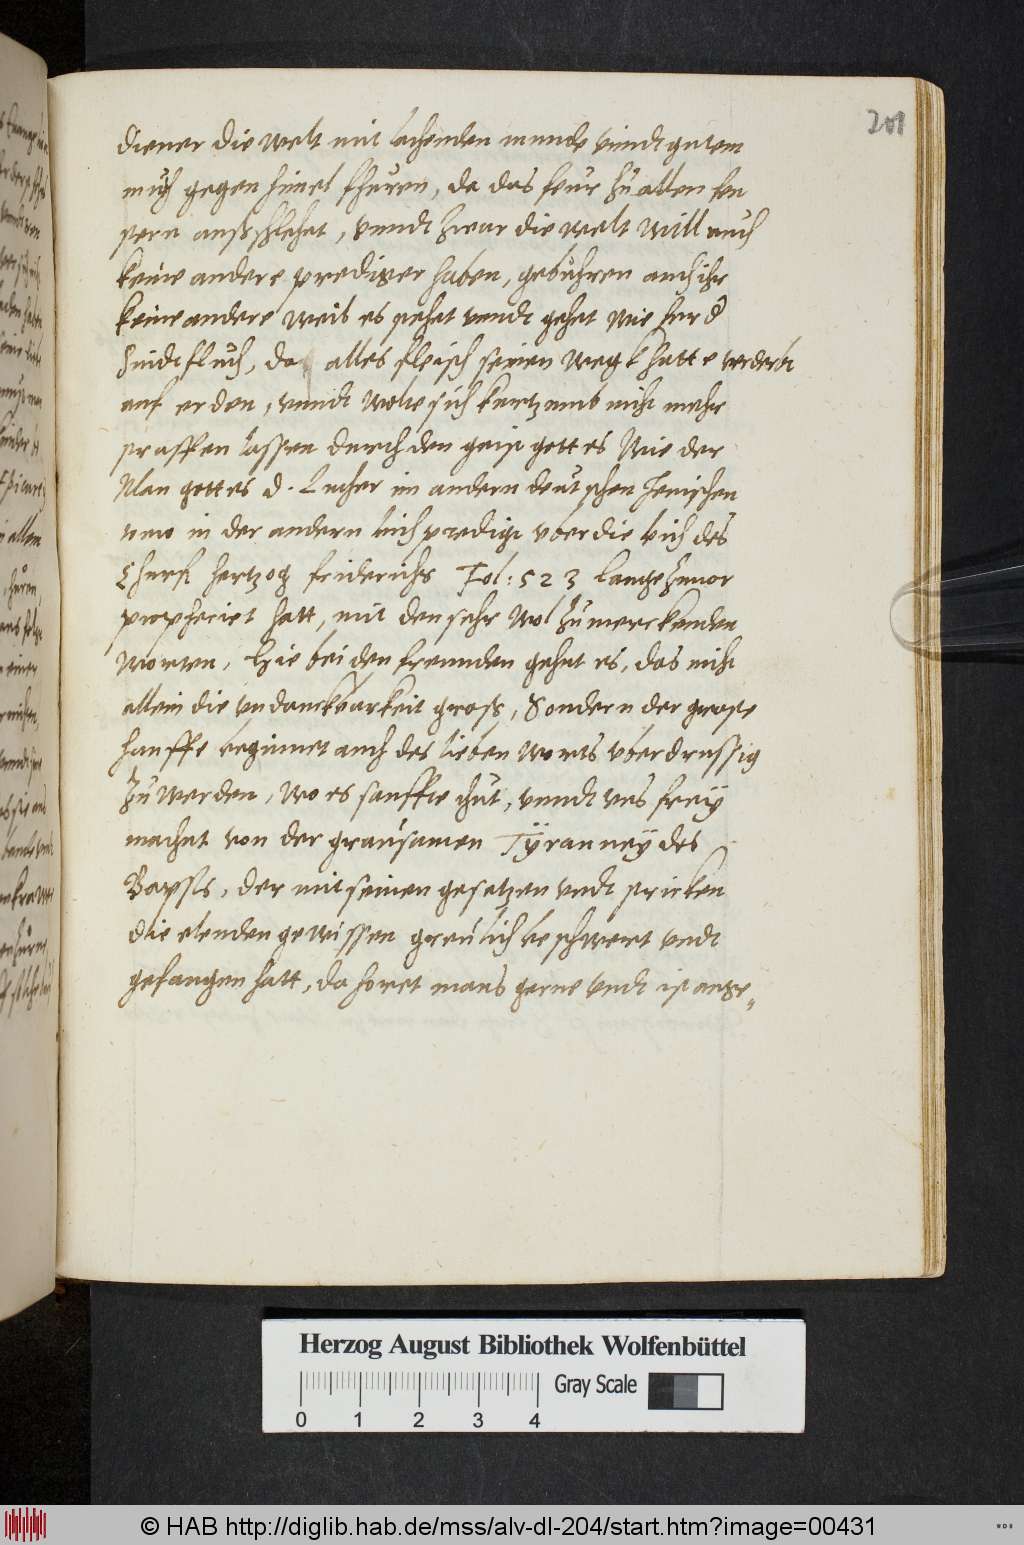 201
diener die welt mit lachenden munde vnndt gutem
muth gegen himel fhuren, da das feur zu allen fen
stern außschlehet, vnndt zwar die welt will auch
keine andere prediger haben, gebuhren auch ihr
keine andere weil es stehet vnndt gehet wie fur d
Sindtfluth, da alles fleisch seinen wegk hatte verderbt
auf erden, vnndt wolte sich kurtzumb nicht mehr
straffen lassen durch den geist gottes Wie der
Man gottes d. Luther im andern deutschen Jenischen
tomo in der andern leichpredigt vber die leich des
Churf. Hertzog friderichs Fol: 523 lange zuuor
propheciet hatt, mit den sehr wol zumerckenden
worten, Hie bei den freunden gehet es, das nicht
allein die vndanckbarkeit gross, Sondern der groste
hauffe beginnet auch des lieben worts vberdrussig
zu werden, wo es sanffte thut, vnndt vns frey
machet von der grausamen Tyranney des
Bapsts, der mit seinen gesetzen vndt stricken
die elenden gewissen greulich beschwert vndt
gefangen hatt, da horet mans gerne vndt ist ange„
Herzog August Bibliothek Wolfenbüttel
Gray Scale
0 1 2 3 4
© HAB http://diglib.hab.de/mss/alv-dl-204/start.htm?image=00431